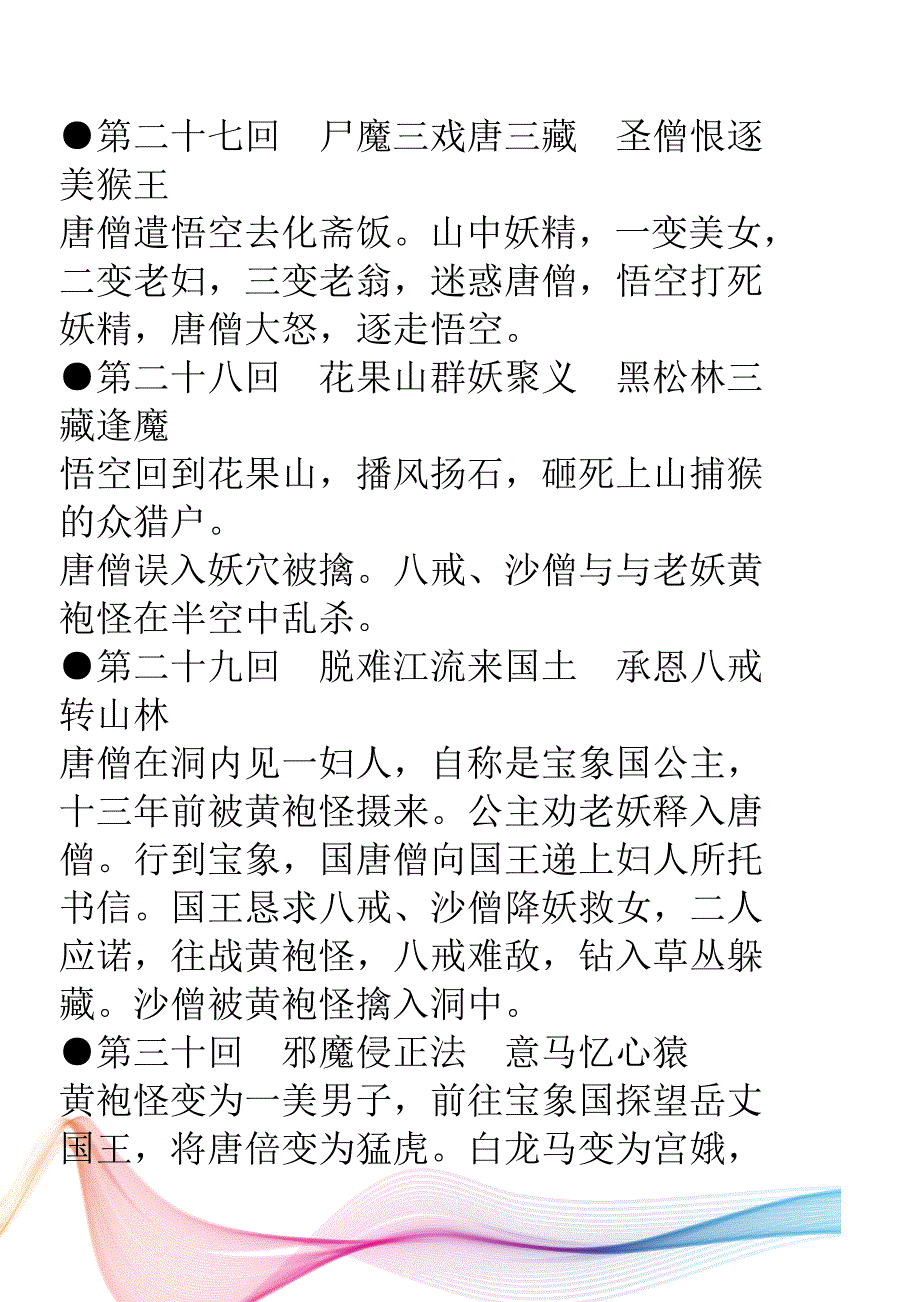 ●第二十七回　尸魔三戏唐三藏　圣僧恨逐
美猴王
唐僧遣悟空去化斋饭。山中妖精，一变美女，
二变老妇，三变老翁，迷惑唐僧，悟空打死
妖精，唐僧大怒，逐走悟空。
●第二十八回　花果山群妖聚义　黑松林三
藏逢魔
悟空回到花果山，播风扬石，砸死上山捕猴
的众猎户。
唐僧误入妖穴被擒。八戒、沙僧与与老妖黄
袍怪在半空中乱杀。
●第二十九回　脱难江流来国土　承恩八戒
转山林
唐僧在洞内见一妇人，自称是宝象国公主，
十三年前被黄袍怪摄来。公主劝老妖释入唐
僧。行到宝象，国唐僧向国王递上妇人所托
书信。国王恳求八戒、沙僧降妖救女，二人
应诺，往战黄袍怪，八戒难敌，钻入草丛躲
藏。沙僧被黄袍怪擒入洞中。
●第三十回　邪魔侵正法　意马忆心猿
黄袍怪变为一美男子，前往宝象国探望岳丈
国王，将唐倍变为猛虎。白龙马变为宫娥，